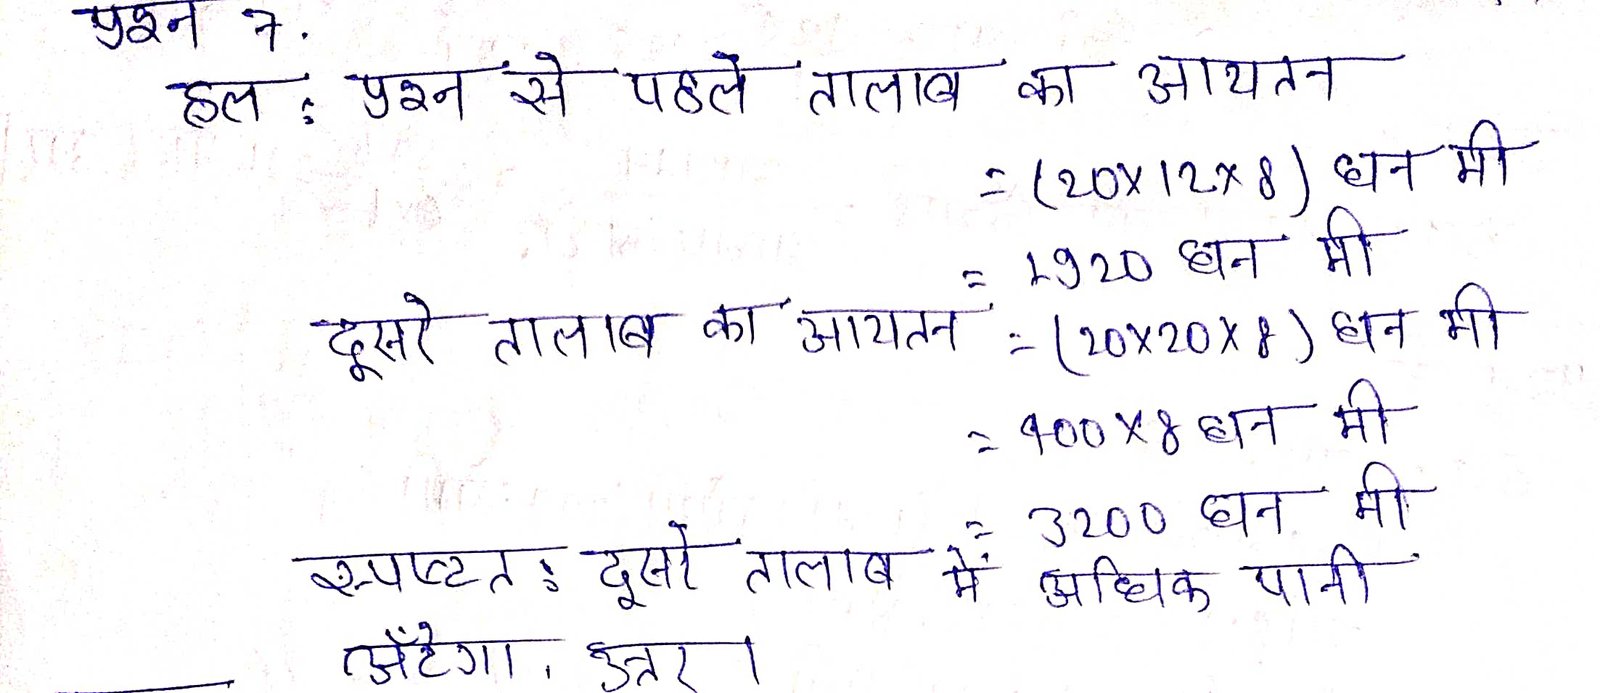 प्रश्न 7.
हल : प्रश्न से पहले तालाब का आयतन
= (20×12×8) घन मी
= 1920 घन मी
दूसरे तालाब का आयतन = (20×20×8) घन मी
= 400×8 घन मी
= 3200 घन मी
स्पष्टतः दूसरे तालाब में अधिक पानी
अँटेगा. उत्तर।